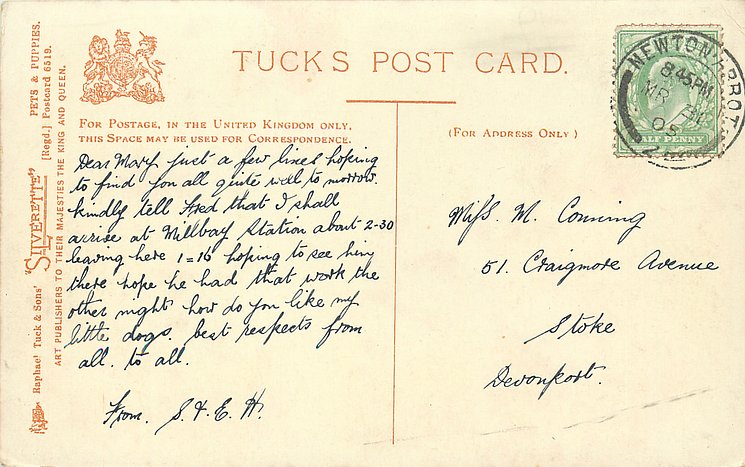 TUCK'S POST CARD.
FOR POSTAGE, IN THE UNITED KINGDOM ONLY,
THIS SPACE MAY BE USED FOR CORRESPONDENCE.
(FOR ADDRESS ONLY)
Dear Mary just a few lines hoping
to find you all quite well to morrow.
kindly tell Fred that I shall
arrive at Millbay Station about 2-30
leaving here 1=16 hoping to see him
there hope he had that work the
other night how do you like my
little dogs. best respects from
all. to all.
From. S. & E. H.
Miss. M. Conning
51. Craigmore Avenue
Stoke
Devonport.
NEWTON ABBOT
8.45PM
MR
05
HALF PENNY
Raphael Tuck & Sons' "SILVERETTE" PETS & PUPPIES.
[Regd.] Postcard 6519.
ART PUBLISHERS TO THEIR MAJESTIES THE KING AND QUEEN.